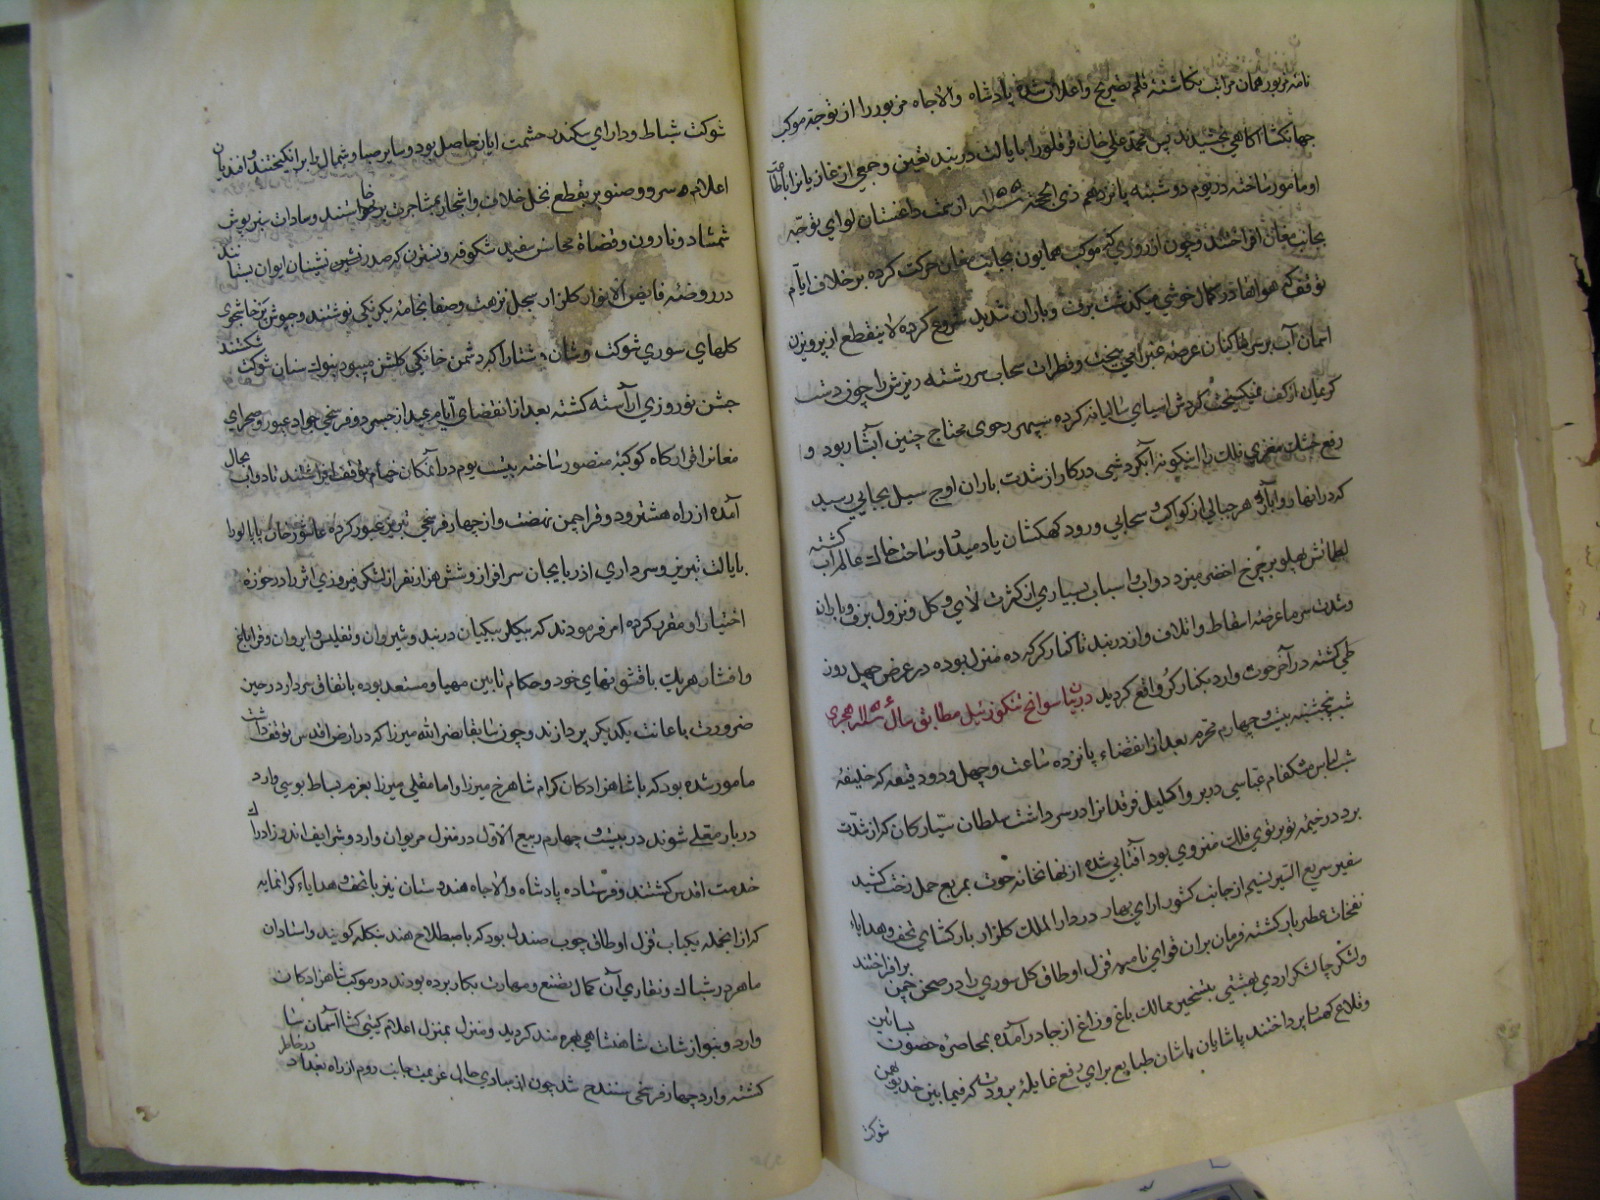 نامه مزبور همان مراتب نگاشته قلم تصریح و اعلان شده پادشاه والاجاه مزبور را از توجه موکب
جهانکشا آکاهی بخشیدند پس محمد علی خان قرقلو را بایالت دربند تعیین و جمعی از غازیانرا باطاعت
او مامور ساخته در یوم دوشنبه پانزدهم ذی الحجه از سمت داغستان لوای توجه
بجانب مغان افراختند و چون از روزی که موکب همایون بجانب مغان حرکت کرده بر خلاف ایام
توقف که هواها در کمال خوشی میکذشت برف و باران شدید شروع کرده لاینقطع از پرویزن
اسمان آب بر سر ساکنان عرصه غبرا می بیخت و قطرات سحاب سررشته ریزش را چون دست
کریمان از کف نمیکسیخت کردش اسیای سالیانه کرده سپهر رحوی محتاج چنین آبشار بود و
رفع خشک مغزی فلک را اینکونه آبکردشی در کار از شدت باران اوج سیل بجایی رسید
که در انهار و ابار هر حبابی از کواکب سحابی و رود کهکشان یاد میداد و ساحت خاک عالم آب کشته
لطماتش پهلو بر چرخ اخضر میزد دواب و اسباب بسیاری از کثرت لای و کل و نزول برف و باران
و شدت سرما عرضه اسقاط و اتلاف و از دربند تا کنار کر که ده منزل بوده در عرض چهل روز
طی کشته در آخر حوت وارد بکنار کر واقع کردید در بیان سوانح تنکوزئیل مطابق سال هجری
شب پنجشنبه بیست و چهارم محرم بعد از انقضاء پانزده ساعت و چهل و دو دقیقه که خلیفه
شب لباس مشکفام عباسی در بر و اکلیل فرقدانرا در سر داشت سلطان سیارکان که از شدت
برد در خیمه تو بر توی فلک منزوی بود آفتابی شده از نهانخانه حوت بمربع حمل رخت کشید
سفیر سریع السیر نسیم از جانب کشور ارای بهار در دار الملک کلزار بارکشای تحف و هدایای
نفحات عطر بار کشته فرمان بران قوای نامیه قزل اوطاق کل سوری را در صحن چمن برافراختند
و لشکر چالشکر اردی بهشتی بتسخیر ممالک باغ و راغ از جا درآمده بمحاصره حصون بساتین
و قلاع کهسار پرداختند پاشایان باشان طبایع برای رفع غایله برودت که فیما بین خدیو بهمن
شوکت
شوکت شباط و دارای سکندر حشمت ایار حاصل بود و سایر صبا و شمال را برانکیختند و افندیان
اعلام سرو و صنوبر بقطع نخل خلاف و اشجار مشاجرت برخاستند و سادات سبز پوش
شمشاد و نارون و قضاة محاسن سفید شکوفه و نسترن که صدر نشین نشینان ایوان بستانند
در روضه فایض الانوار کلزار سجل نزهت و صفا بخامه یکرنکی نوشتند و جیوش
کلهای سوری شوکت و شان شتا را که دشمن خانکی کلشن میبود بنوک سنان شوکت شکستند
جشن نوروزی آراسته کشته بعد از انقضای ایام عید از جسر دو فرسخی جواد عبور و صحرای
مغانرا قرارکاه کوکبه منصور ساخته بیست یوم در آنمکان خیام توقف افراشتند تا دواب بحال
آمده از راه هشترود و قراچمن نهضت و از چهار فرسخی تبریز عبور کرده عاشور خان پاپالو را
بایالت تبریز و سرداری اذربایجان سرافراز و شش هزار نفر از لشکر فیروزی اثر را در حوزه
اختیار او مقرر کرده امر فرمودند که بیکلربیکیان دربند و شیروان و تفلیس و ایروان و قراباغ
و افشار هریک با قشونهای خود و حکام تابین مهیا و مستعد بوده باتفاق سردار در حین
ضرورت باعانت یکدیکر پردازند و چون سابقا نصر الله میرزا که در ارض اقدس توقف داشت
مامور شده بود که با شاهزادکان کرام شاهرخ میرزا و امامقلی میرزا بعزم بساط بوسی وارد
دربار معلی شوند در بیست و چهارم ربیع الاول در منزل مریوان وارد و شرایف اندوز ادراک
خدمت اقدس کشتند و فرستاده پادشاه والاجاه هندوستان نیز با تحف و هدایاء کرانمایه
که از انجمله یکباب قزل اوطاق چوب صندل بود که باصطلاح هند بنکله کویند و استادان
ماهر در شباک و نقاری آن کمال تصنع و مهارت بکار برده بودند در موکب شاهزادکان
وارد و بنوازشات شاهنشاهی بهره مند کردید و منزل بمنزل اعلام کیتی کشا آسمان سا
کشته وارد چهار فرسخی سنندج شد چون از مبادی حال عزیمت جانب روم از راه بغداد در خاطر